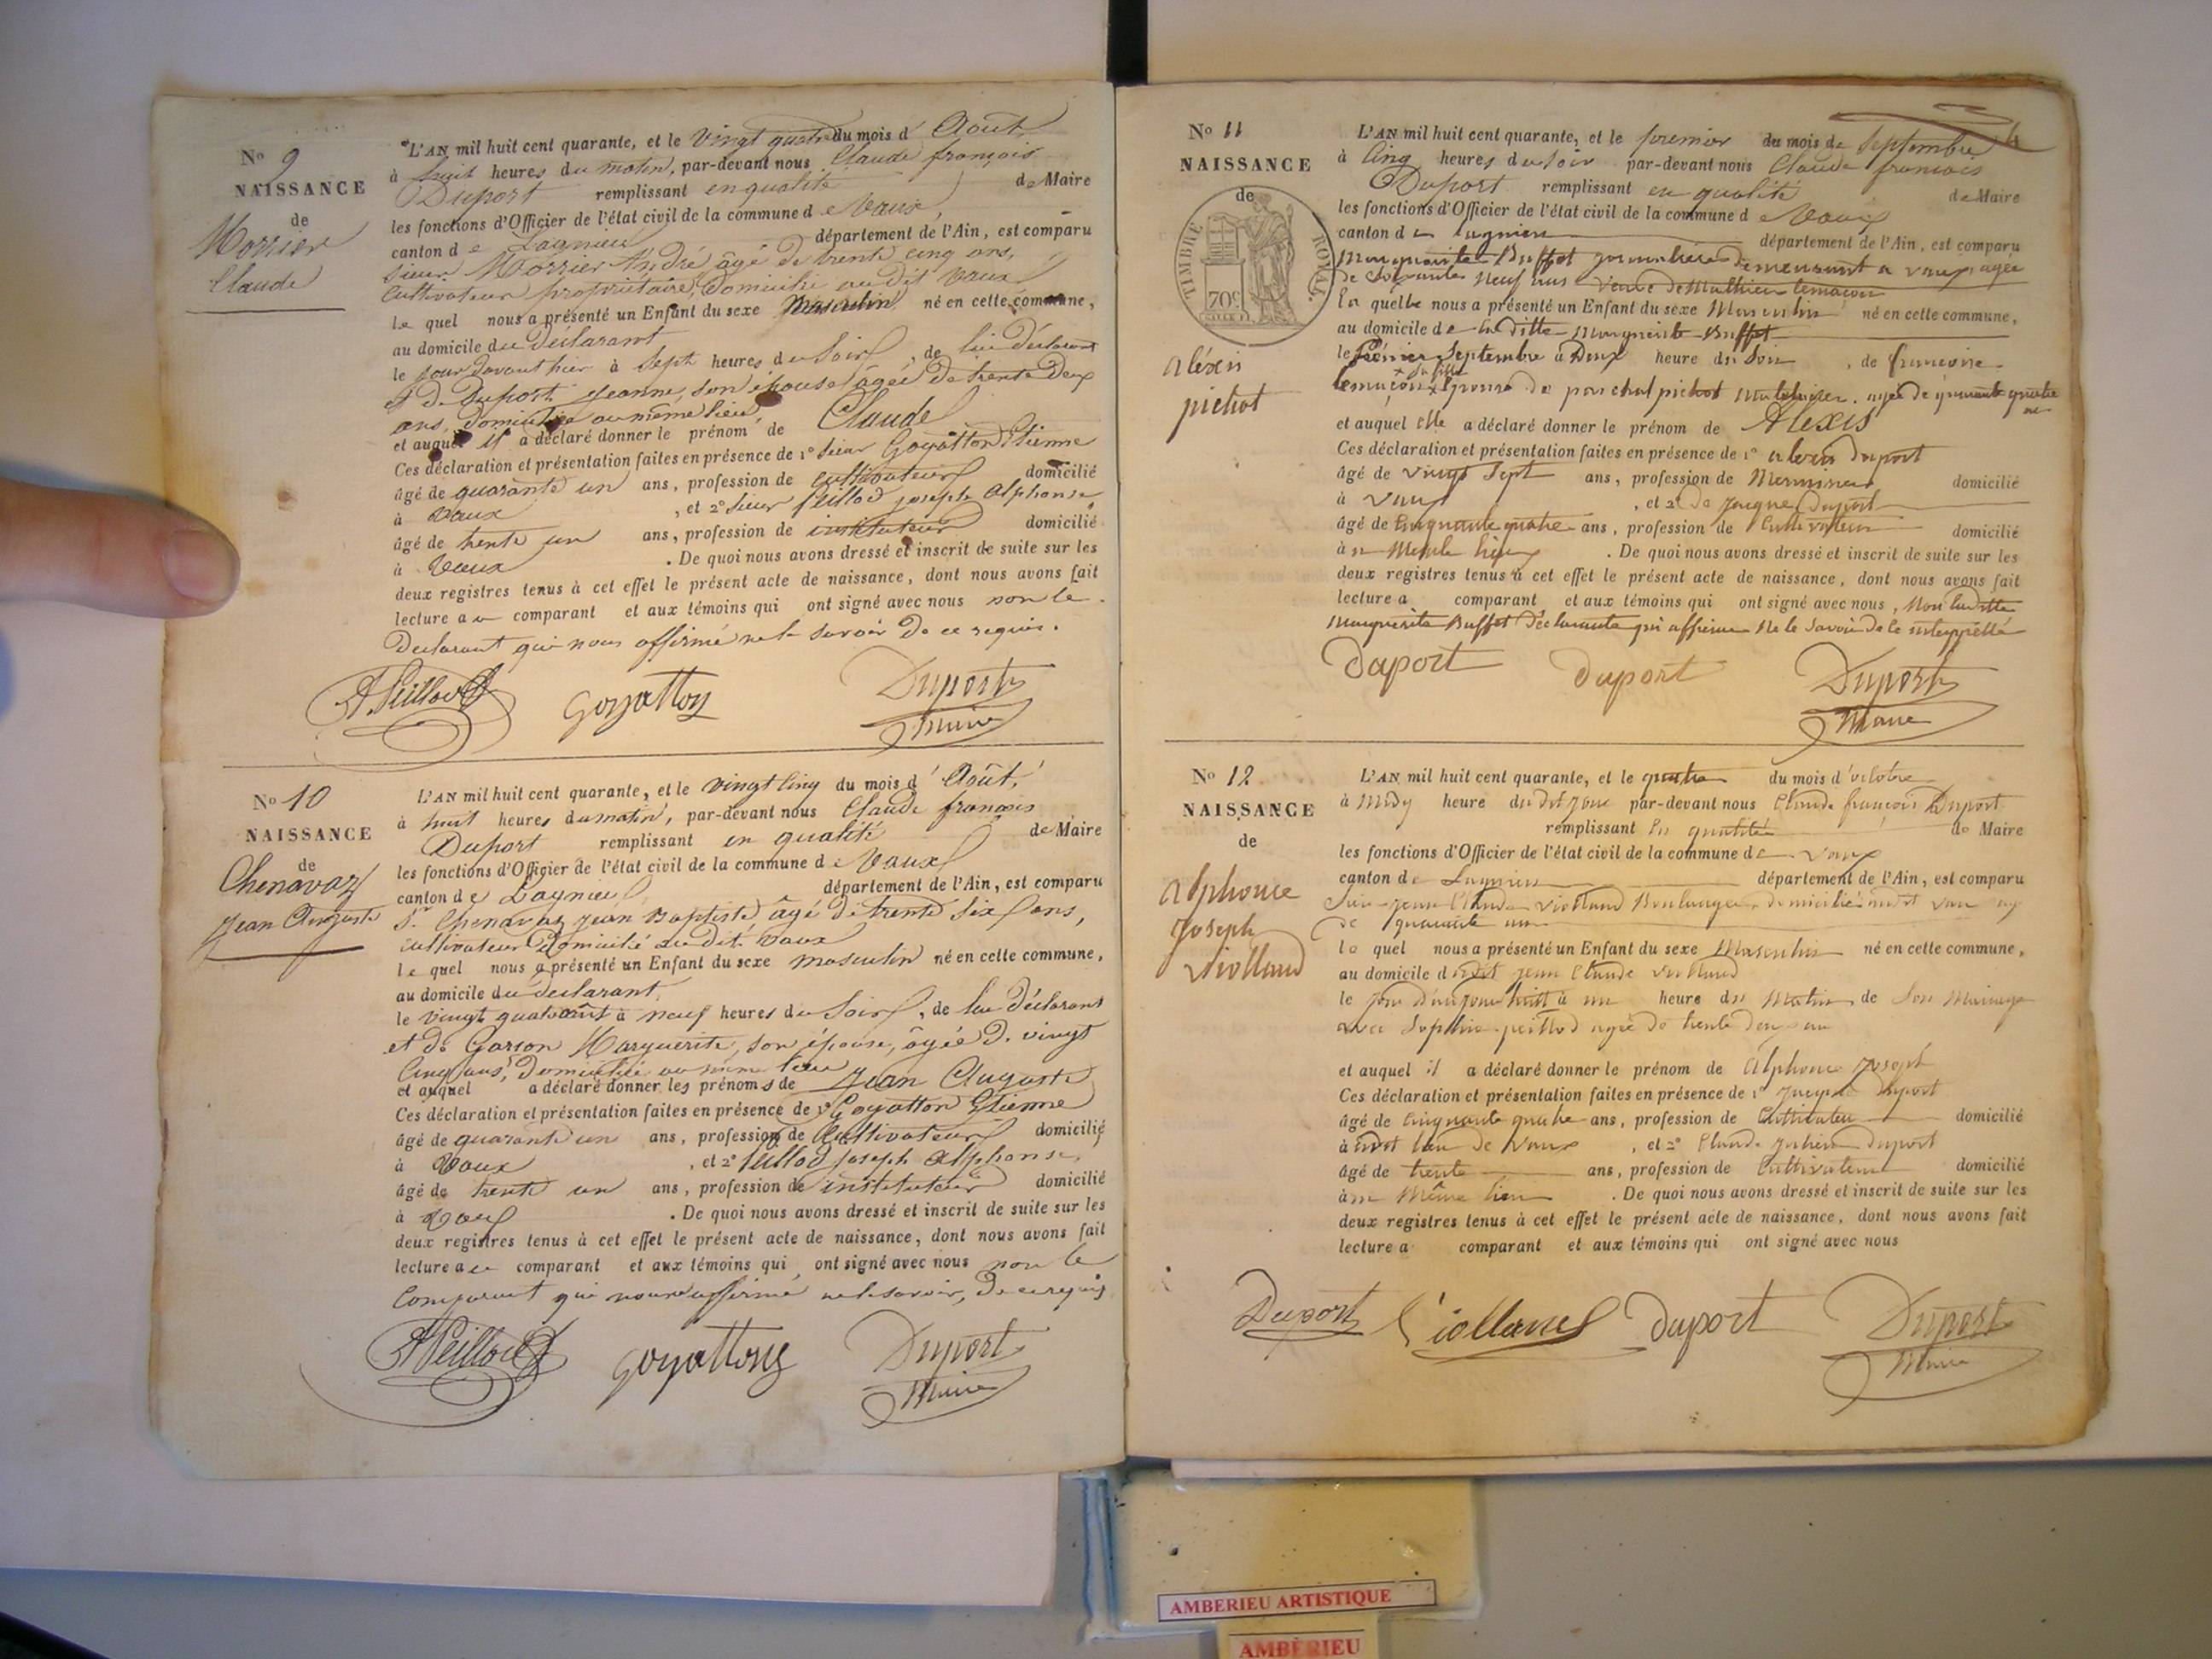 No 9
NAISSANCE
de
Morrier
Claude
L'AN mil huit cent quarante, et le vingt quatre du mois d'Août
à huit heures du matin, par-devant nous Claude françois
Duport remplissant en qualité de Maire
les fonctions d'Officier de l'état civil de la commune de Vaux,
canton de Lagnieu département de l'Ain, est comparu
sieur Morrier André âgé de trente cinq ans,
cultivateur propriétaire, domicilié audit Vaux
le quel nous a présenté un Enfant du sexe Masculin né en cette commune,
au domicile du déclarant
le jour davant hier à sept heures du soir, de lui déclarant
et de Duport Jeanne, son épouse âgée de trente deux
ans, domiciliée au même lieu,
et auquel il a déclaré donner le prénom de Claude
Ces déclaration et présentation faites en présence de 1º sieur Goyatton Etienne
âgé de quarante un ans, profession de cultivateur domicilié
à Vaux, et 2º sieur Peillod joseph alphonse
âgé de trente un ans, profession de instituteur domicilié
à Vaux. De quoi nous avons dressé et inscrit de suite sur les
deux registres tenus à cet effet le présent acte de naissance, dont nous avons fait
lecture au comparant et aux témoins qui ont signé avec nous non le
déclarant qui nous affirmé ne le savoir de ce requis.
A Peillod Goyatton Duport
Maire
No 10
NAISSANCE
de
Chenavaz
Jean Auguste
L'AN mil huit cent quarante, et le vingt cinq du mois d'Août,
à huit heures du matin, par-devant nous Claude françois
Duport remplissant en qualité de Maire
les fonctions d'Officier de l'état civil de la commune de Vaux
canton de Lagnieu département de l'Ain, est comparu
Sr Chenavaz Jean Baptiste âgé de trente six ans,
cultivateur domicilié au dit Vaux
le quel nous a présenté un Enfant du sexe masculin né en cette commune,
au domicile du déclarant
le vingt quatre août à neuf heures du soir, de lui déclarant
et de Garson Marguerite, son épouse, âgée de vingt
cinq ans, domiciliée au même lieu
et auquel a déclaré donner les prénoms de Jean Auguste
Ces déclaration et présentation faites en présence de 1º Goyatton Etienne
âgé de quarante un ans, profession de cultivateur domicilié
à Vaux, et 2º Peillod joseph Alphonse,
âgé de trente un ans, profession de instituteur domicilié
à Vaux. De quoi nous avons dressé et inscrit de suite sur les
deux registres tenus à cet effet le présent acte de naissance, dont nous avons fait
lecture au comparant et aux témoins qui ont signé avec nous non le
comparant qui nous affirmé ne le savoir, de ce requis
A Peillod goyatton Duport
Maire
4
No 11
NAISSANCE
de
TIMBRE ROYAL.
70c
aléxis
pichot
L'AN mil huit cent quarante, et le premier du mois de Septembre
à cinq heures du soir par-devant nous Claude francois
Duport remplissant en qualité de Maire
les fonctions d'Officier de l'état civil de la commune de Vaux
canton de Lagnieu département de l'Ain, est comparu
Marguerite Buffet journalière demeurant a vaux agée
de soixante neuf ans veuve de Mathieu lemaçon
la quelle nous a présenté un Enfant du sexe Masculin né en cette commune,
au domicile de la ditte Marguerite Buffet
le premier Septembre à Deux heure du soir, de francoise
lemaçon sa fille Epouse de paschal pichot agée de quarante quatre
ans
et auquel elle a déclaré donner le prénom de Alexis
Ces déclaration et présentation faites en présence de 1º alexis duport
âgé de vingt sept ans, profession de Menuisier domicilié
à vaux, et 2º de jacque Duport
âgé de cinquante quatre ans, profession de cultivateur domicilié
à Meme lieux. De quoi nous avons dressé et inscrit de suite sur les
deux registres tenus à cet effet le présent acte de naissance, dont nous avons fait
lecture a comparant et aux témoins qui ont signé avec nous, Non laditte
Marguerite Buffet déclarante qui affirme Ne le savoir de ce interppellé
Duport duport Duport
Maire
No 12
NAISSANCE
de
alphonse
Joseph
Violland
L'AN mil huit cent quarante, et le quatre du mois d'octobre
à Midy heure dudit jour par-devant nous Claude françois Duport
remplissant en qualité de Maire
les fonctions d'Officier de l'état civil de la commune de vaux
canton de Lagnieu département de l'Ain, est comparu
Sieur Jean Claude violland Boulanger domicilié audit vaux agé
de quarante ans
le quel nous a présenté un Enfant du sexe Masculin né en cette commune,
au domicile dudit jean Claude violland
le jour d'aujourd'huit à une heure du Matin, de son Mariage
avec Sophie peillod agée de trente deux ans
et auquel il a déclaré donner le prénom de alphonse Joseph
Ces déclaration et présentation faites en présence de 1º Jacque Duport
âgé de cinquante quatre ans, profession de Cultivateur domicilié
à audit lieu de Vaux, et 2º Claude Julien duport
âgé de trente ans, profession de Cultivateur domicilié
à Même lieu. De quoi nous avons dressé et inscrit de suite sur les
deux registres tenus à cet effet le présent acte de naissance, dont nous avons fait
lecture a comparant et aux témoins qui ont signé avec nous
Duport Violland duport Duport
Maire
AMBERIEU ARTISTIQUE
AMBÉRIEU